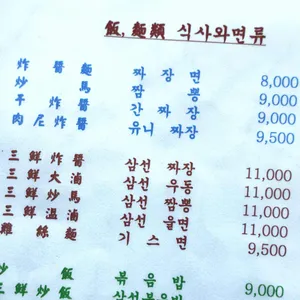 飯, 麵類 식사와면류
炸醬麵 짜장면 8,000
炒馬 짬뽕 9,000
干炸醬 간짜장 9,000
肉尼炸醬 유니짜장 9,500
三鮮炸醬 삼선짜장 11,000
三鮮大滷 삼선우동 11,000
三鮮炒馬 삼선짬뽕 11,000
三鮮溫滷 삼선울면 11,000
雞絲麵 기스면 9,500
炒飯 볶음밥 9,000
삼선볶음밥